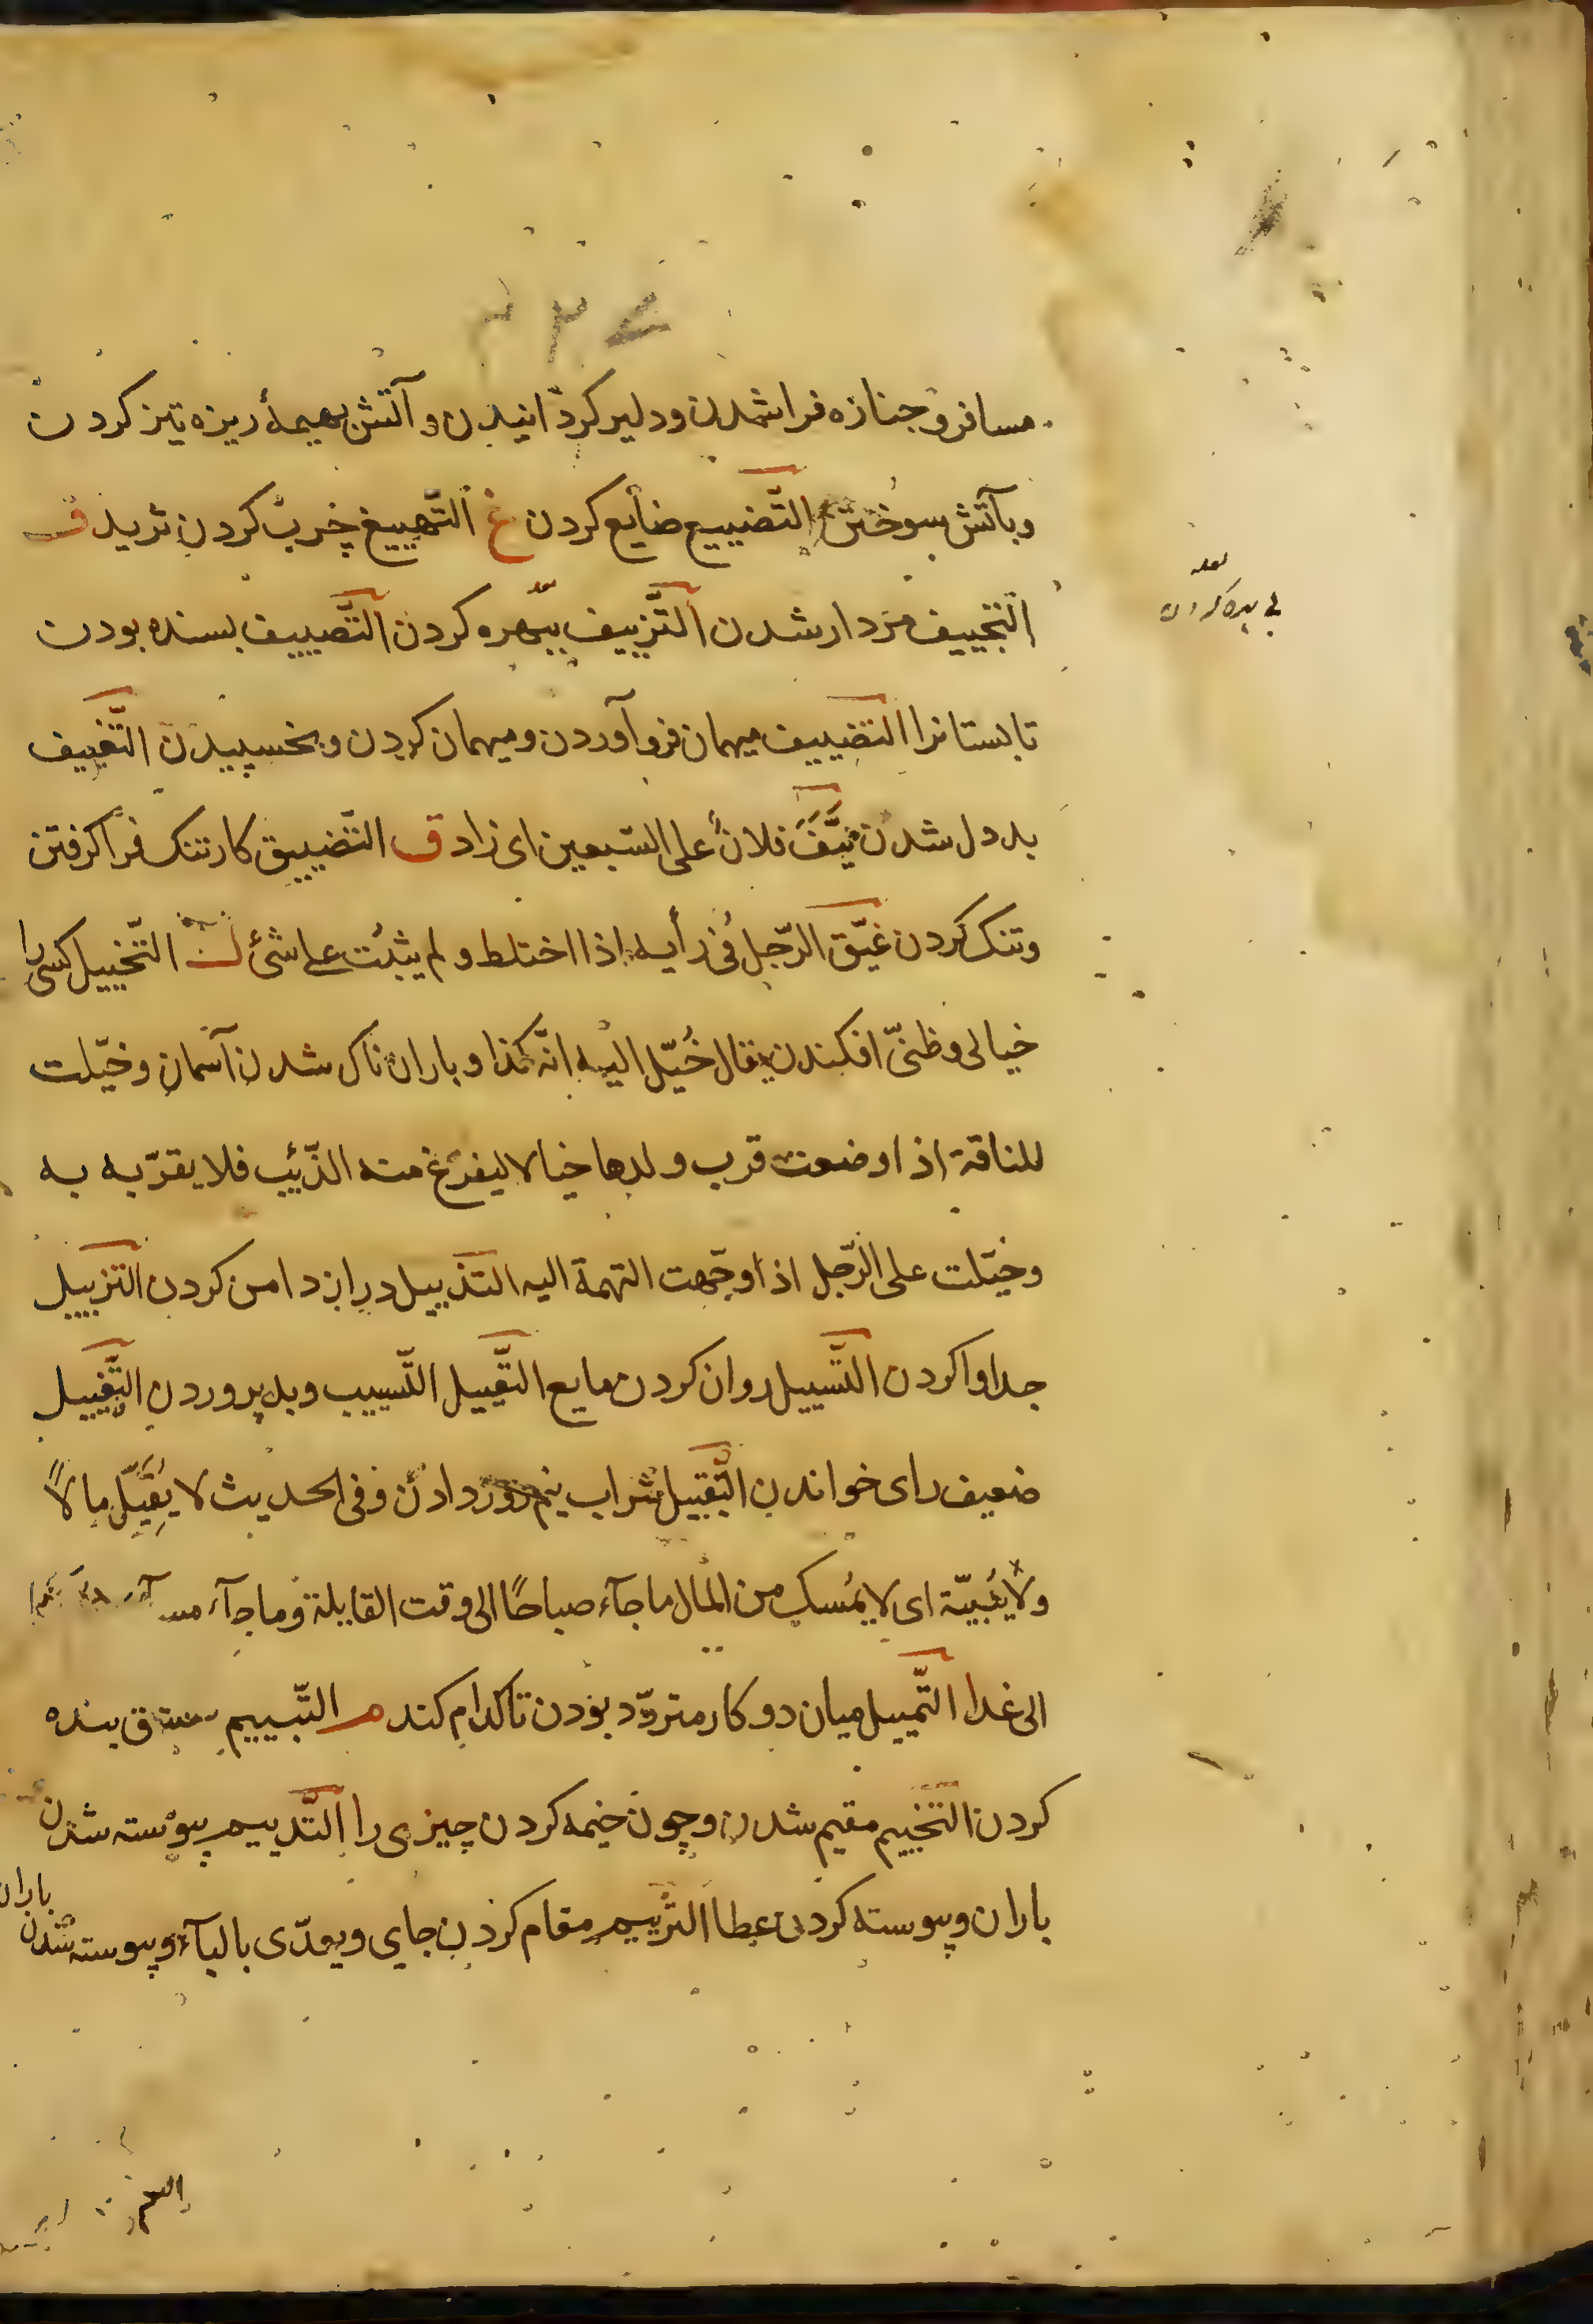 مسافر و جنازه فراشدن و دلیر کردانیدن و آتش بهیمهٔ ریزه تیز کردن
و بآتش بسوختن التَّضییع ضایع کردن غ التَّهییغ چرب کردن ثرید ف
التّجییف مردار شدن التَّزییف ببهره کردن التَّصییف بسنده بودن
تابستانرا التضییف میهمان فروآوردن و میهمان کردن و بخسپیدن التّغییف
بددل شدن نیَّفَ فلانٌ علی السّبعین ای زاد ق التّضییق کار تنک فراکرفتن
و تنک کردن غیّق الرّجل فی رأیه اذا اختلط و لم یثبت علی شئ ل التّخییل کسی را
خیالی و ظنیّ افکندن یقال خُیّل الیه انّه کذا و باران ناک شدن آسمان و خیّلت
للناقة اذا وضعت قرب ولدها خیالا لیفزغ منه الذّئب فلا یقرّبه به
و خیّلت علی الرّجل اذا وجّهت التهمة الیه التذییل دراز دامن کردن التزییل
جداوا کردن التَّسییل روان کردن مایع التَّقییل التّسییب و بد پروردن التَّفییل
ضعیف رای خواندن التَّقییل شراب نیم روز دادن و فی الحدیث لا یُقَیّل مالاً
ولا یُبیّته ای لا یُمسک من المال ما جآء صباحًا الی وقت القایلة و ما جآء مسآء
الی غدا التّمییل میان دو کار متردّد بودن تا کدام کند م التّییم بنده
کردن التخییم مقیم شدن و چون خیمه کردن چیزی را التَّدییم پیوسته شدن
باران و پیوسته کردن عطا التّرییم مقام کردن جای و یعدّی بالبآء و پیوسته شدن باران